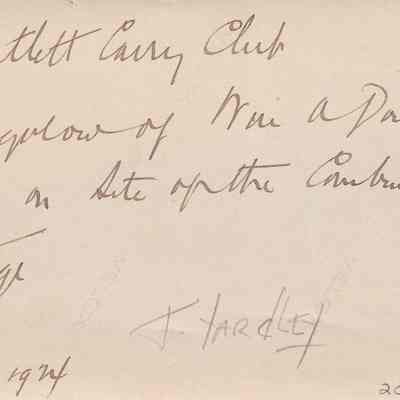 tlett Carry Club
galow of Wm A Da
on Site of the Combin
ge
J. YARDLEY
1924
20